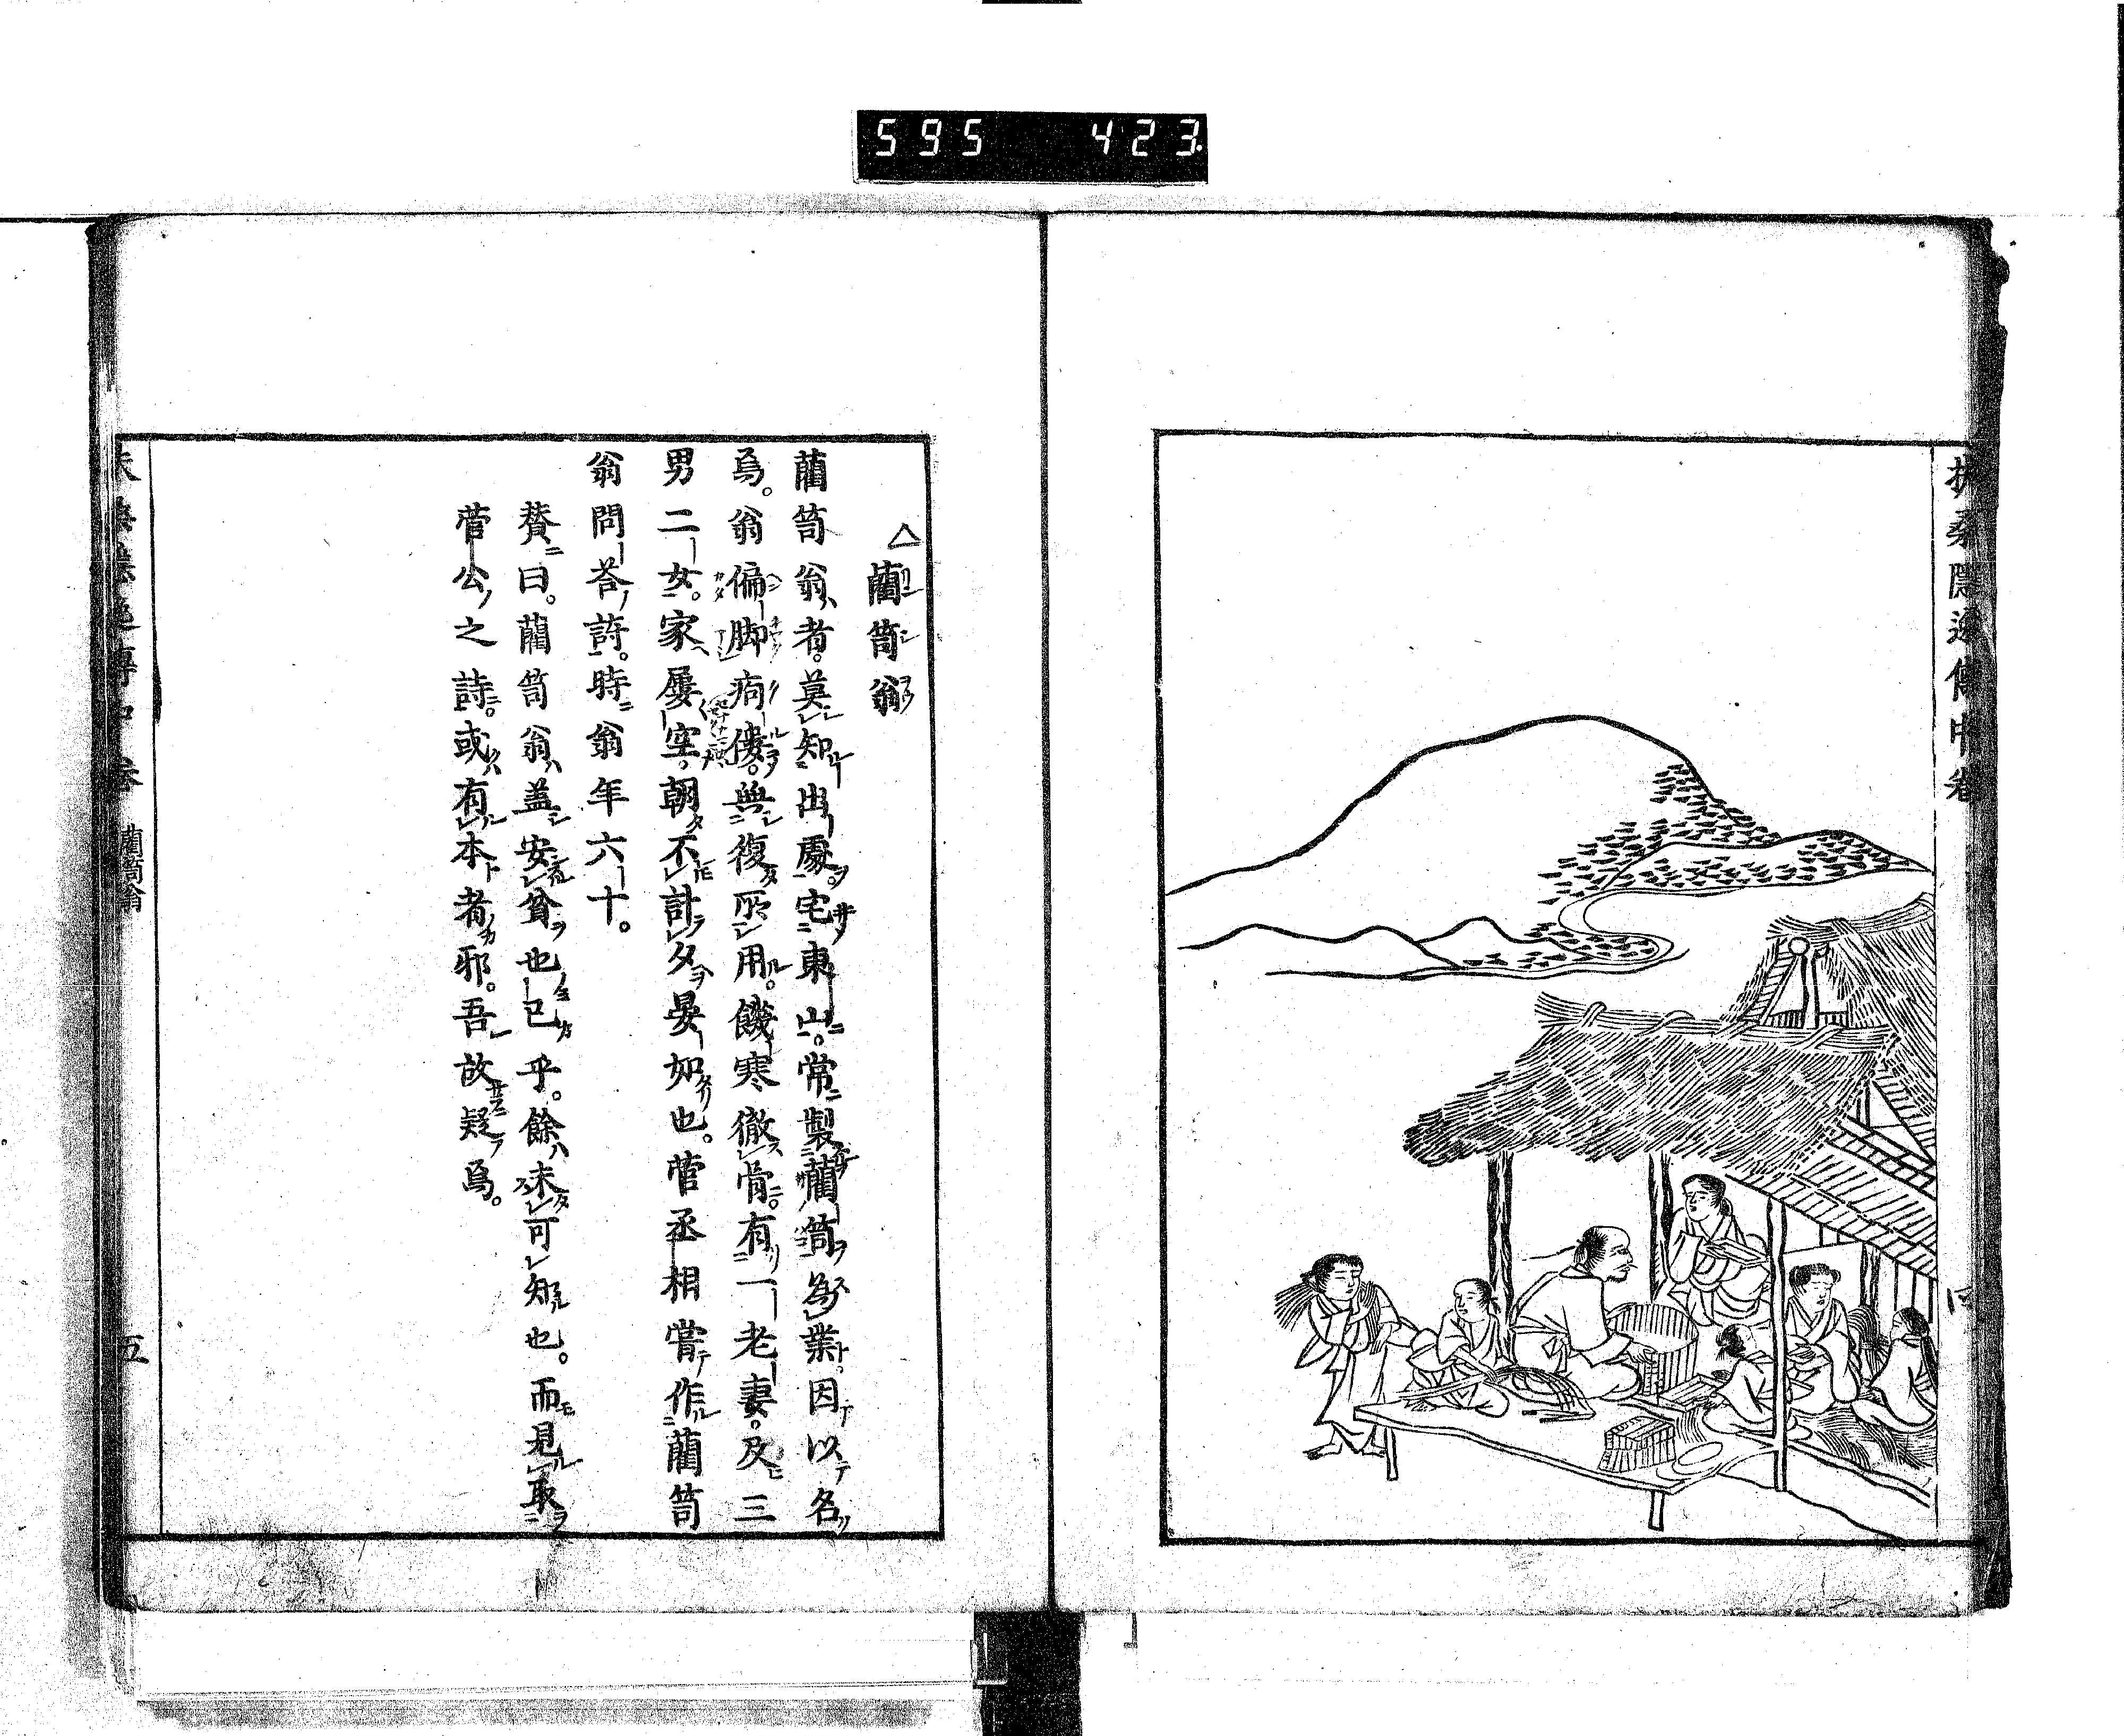 595 423
扶桑隱逸傳中卷
△藺笥翁
藺笥翁者。莫知出處。宅東山。常製藺笥為業。因以名
焉。翁偏脚痀僂。無復所用。饑寒徹骨。有一老妻。及三
男二女。家屢空。朝不計夕。晏如也。菅丞相嘗作藺笥
翁問荅詩。時翁年六十。
賛曰。藺笥翁。盖安貧也已乎。餘未可知也。而見取
菅公之詩。或有本者邪。吾故疑焉。
藺笥翁
五